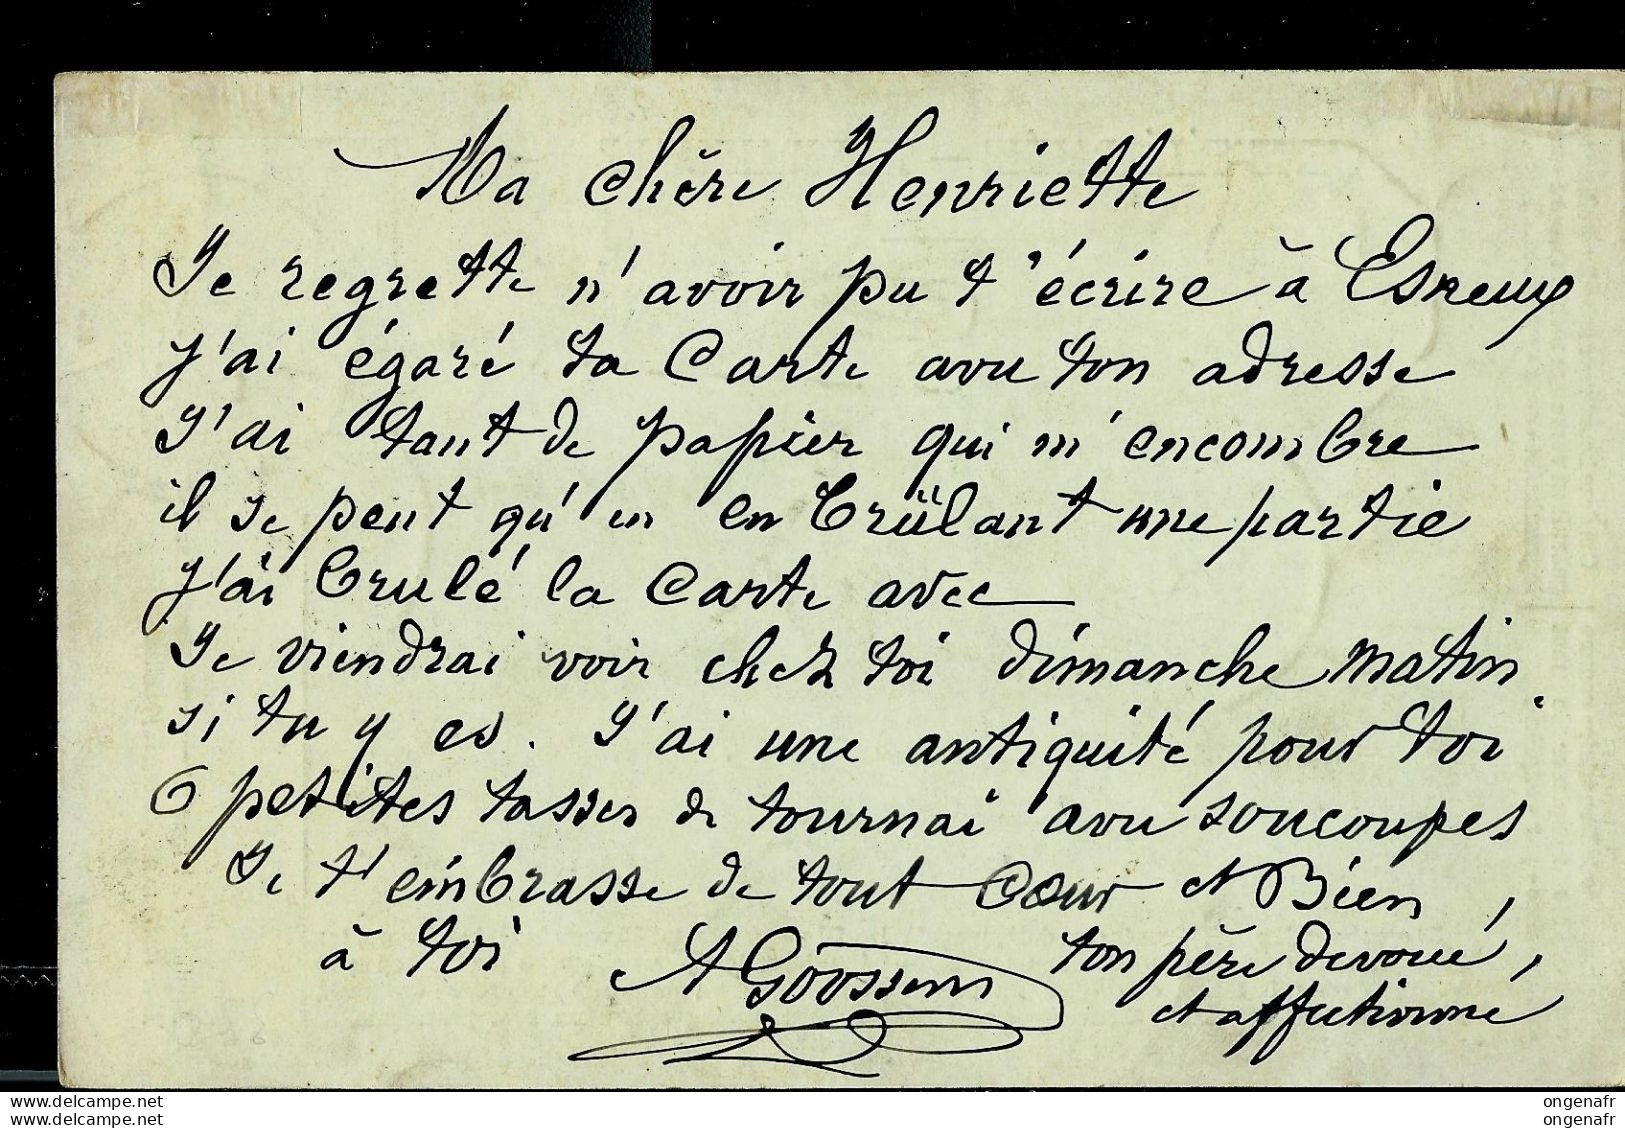 Ma chère Henriette
Je regrette n'avoir pu t'écrire à Esneux
J'ai égaré ta Carte avec ton adresse
J'ai tant de papier qui m'encombre
il se peut qu'en en brûlant une partie
J'ai brulé la Carte avec
Je viendrai voir chez toi dimanche matin
si tu y es. J'ai une antiquité pour toi
6 petites tasses de tournai avec soucoupes
Je t'embrasse de tout Coeur et Bien
à toi A Goossens ton père devoué,
et affectionné
www.delcampe.net ongenafr
www.delcampe.net ongenafr